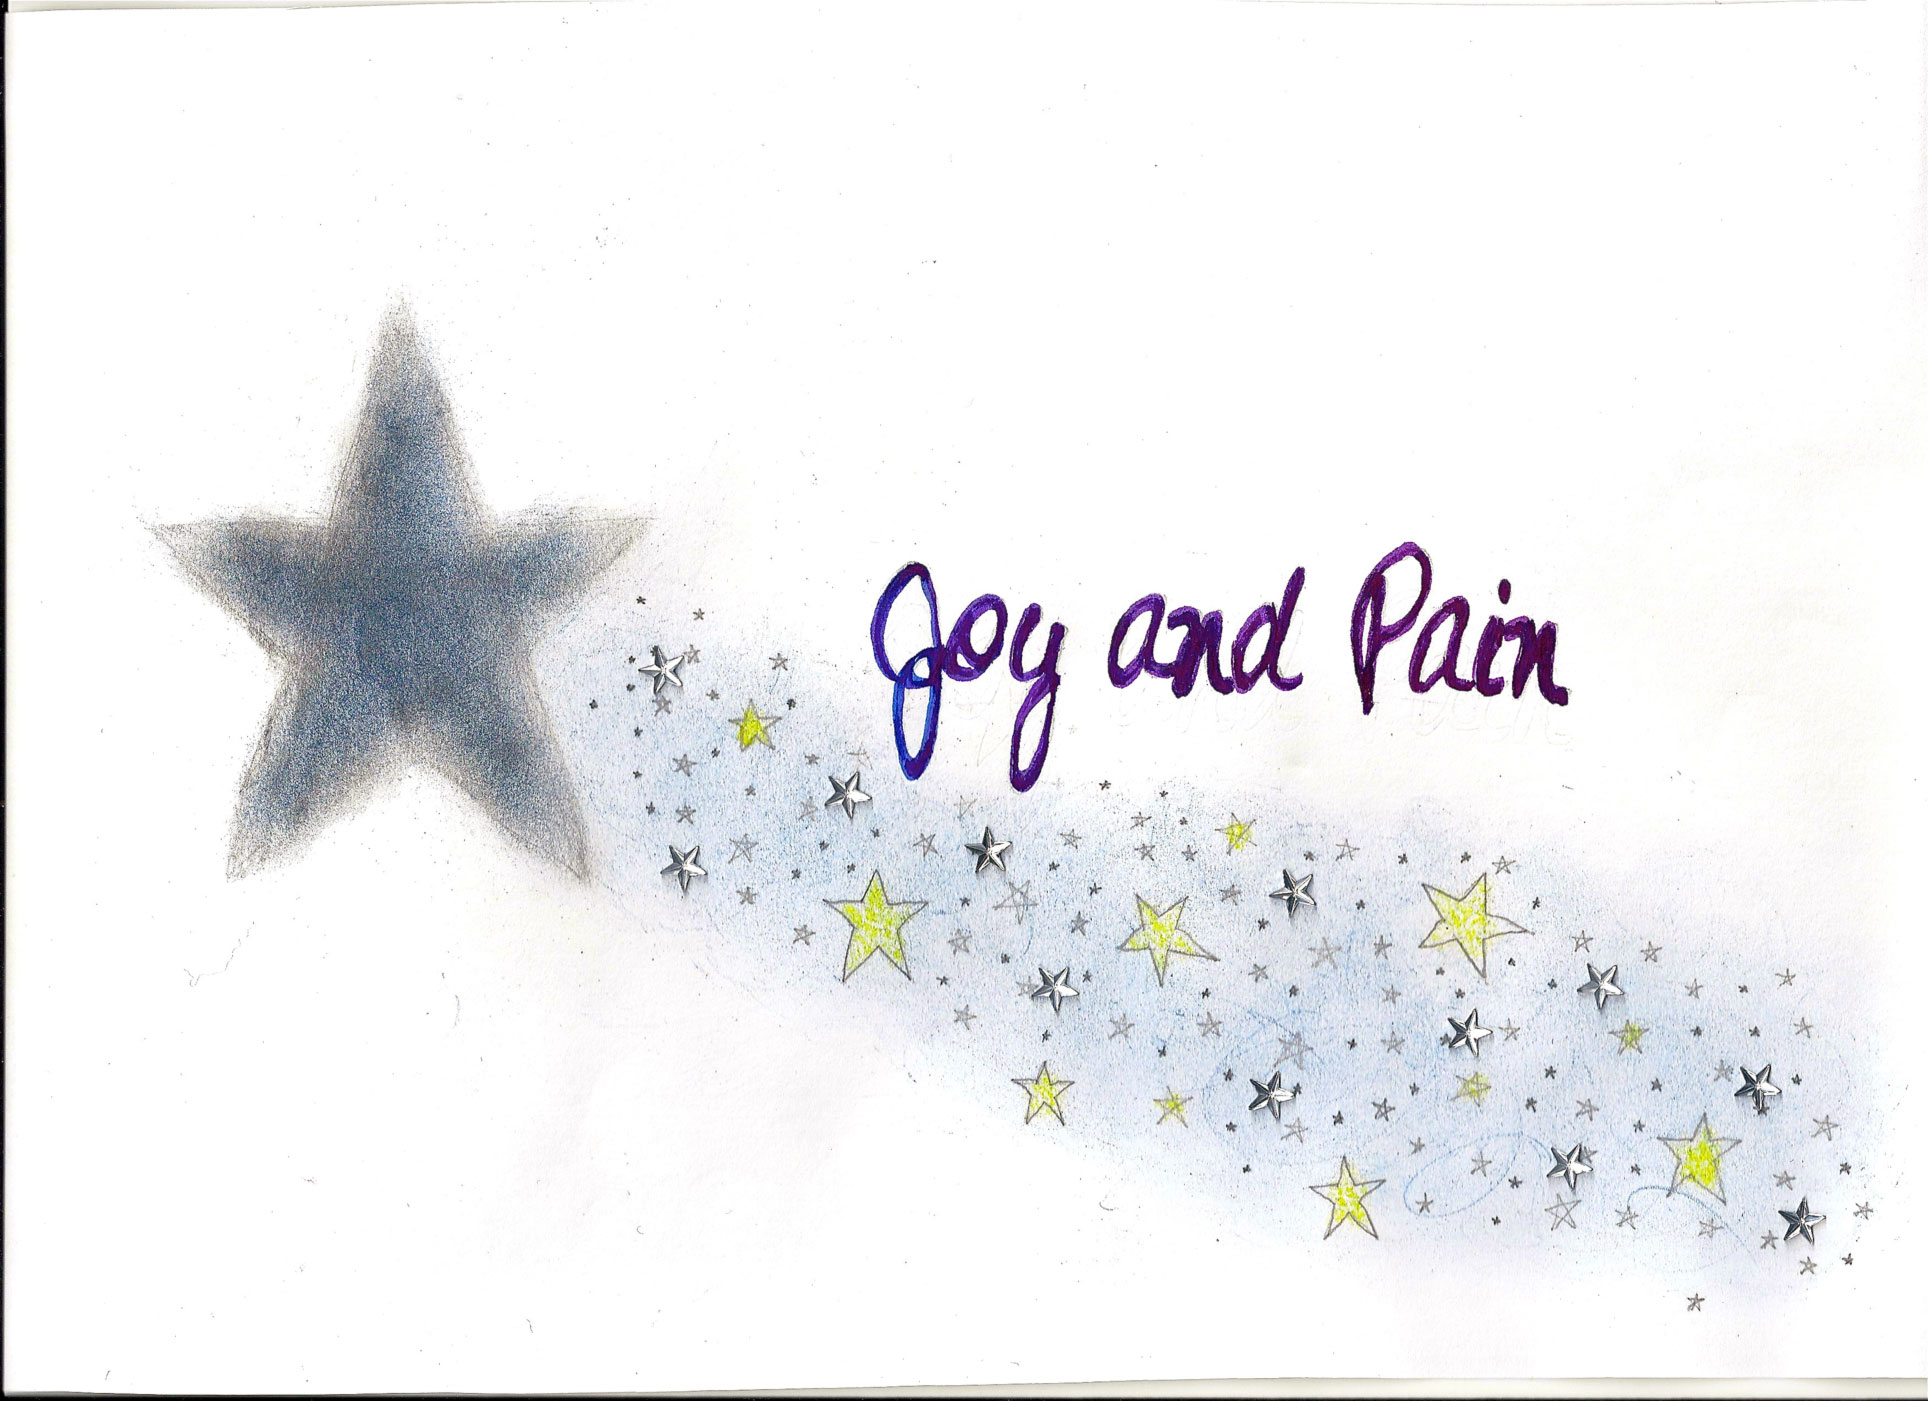 Joy and Pain